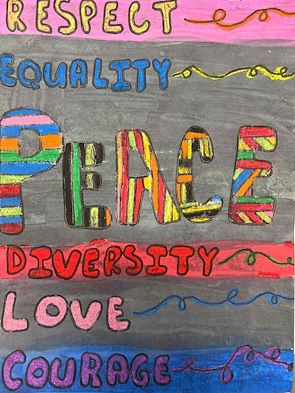 RESPECT
EQUALITY
PEACE
DIVERSITY
LOVE
COURAGE